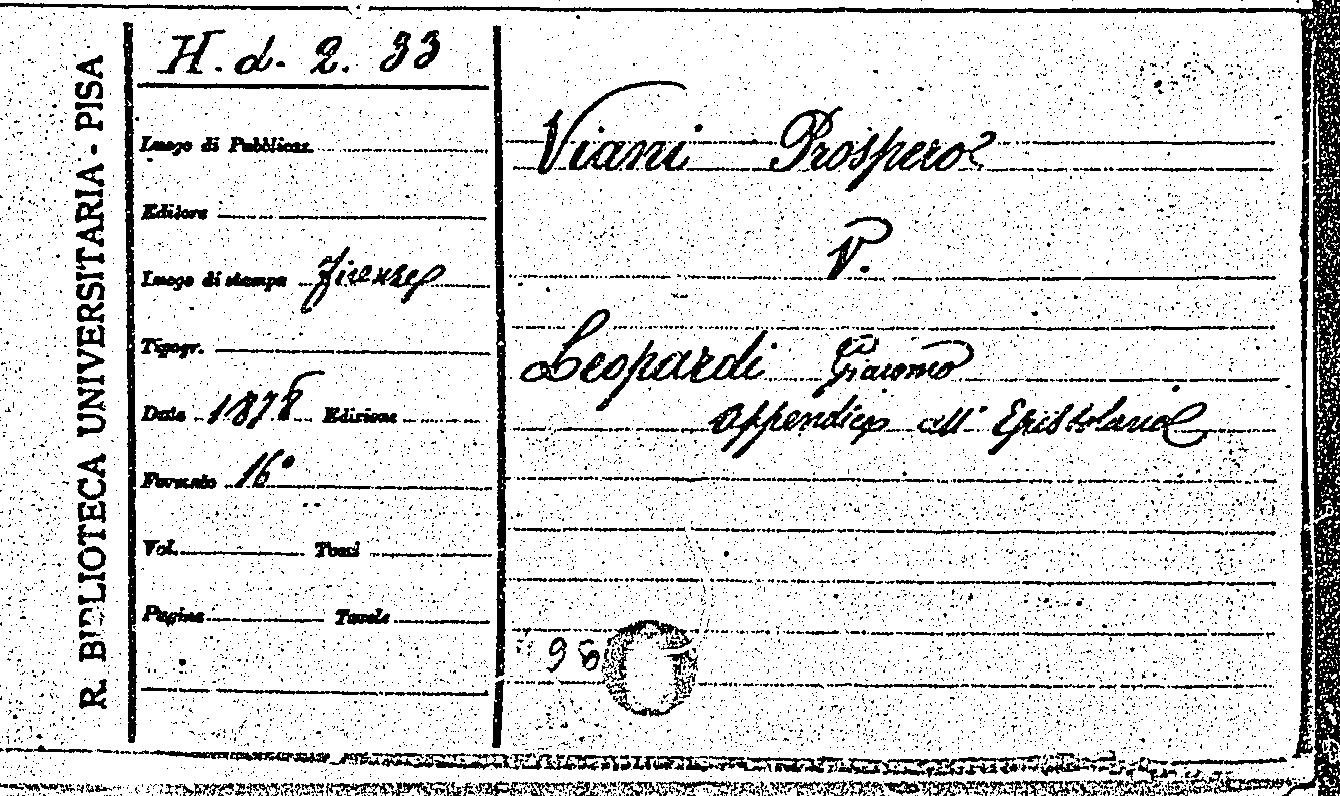 R. BIBLIOTECA UNIVERSITARIA - PISA
H. d. 2. 33
Luogo di Pubblicaz.
Editore
Luogo di stampa Firenze
Tipogr.
Data 1878 Edizione
Formato 16°
Vol. Tomi
Pagine Tavole
Viani Prospero
V.
Leopardi Giacomo
Appendice all' Epistolario
98